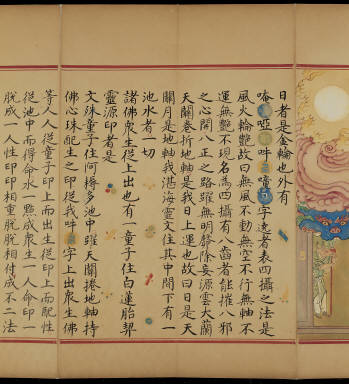 日者是金輪也外有
唵啞吽𤚥字遶者表四攝之法是
風火輪艷故曰無風不動無空不行無軸不
運無艷不現名為四攝有八齒者能摧八邪
之心開八正之路璀無明
除妄源雲大闌
天關卷折地軸是我日上運也故曰日是天
關月是地軸我湛海靈文住其中間下有一
池水者一切
諸佛衆生從上出也有一童子住白蓮胎契
靈源印者是
文殊童子住阿耨多池中璀天關捲地軸持
佛心珠配生之印從我吽字上出衆生佛
等人人從童子印上而出生從印上而配性
從池中而得命水一㸃成衆生一人命印一
脫成一人性印印相重脫脫相付成不二法